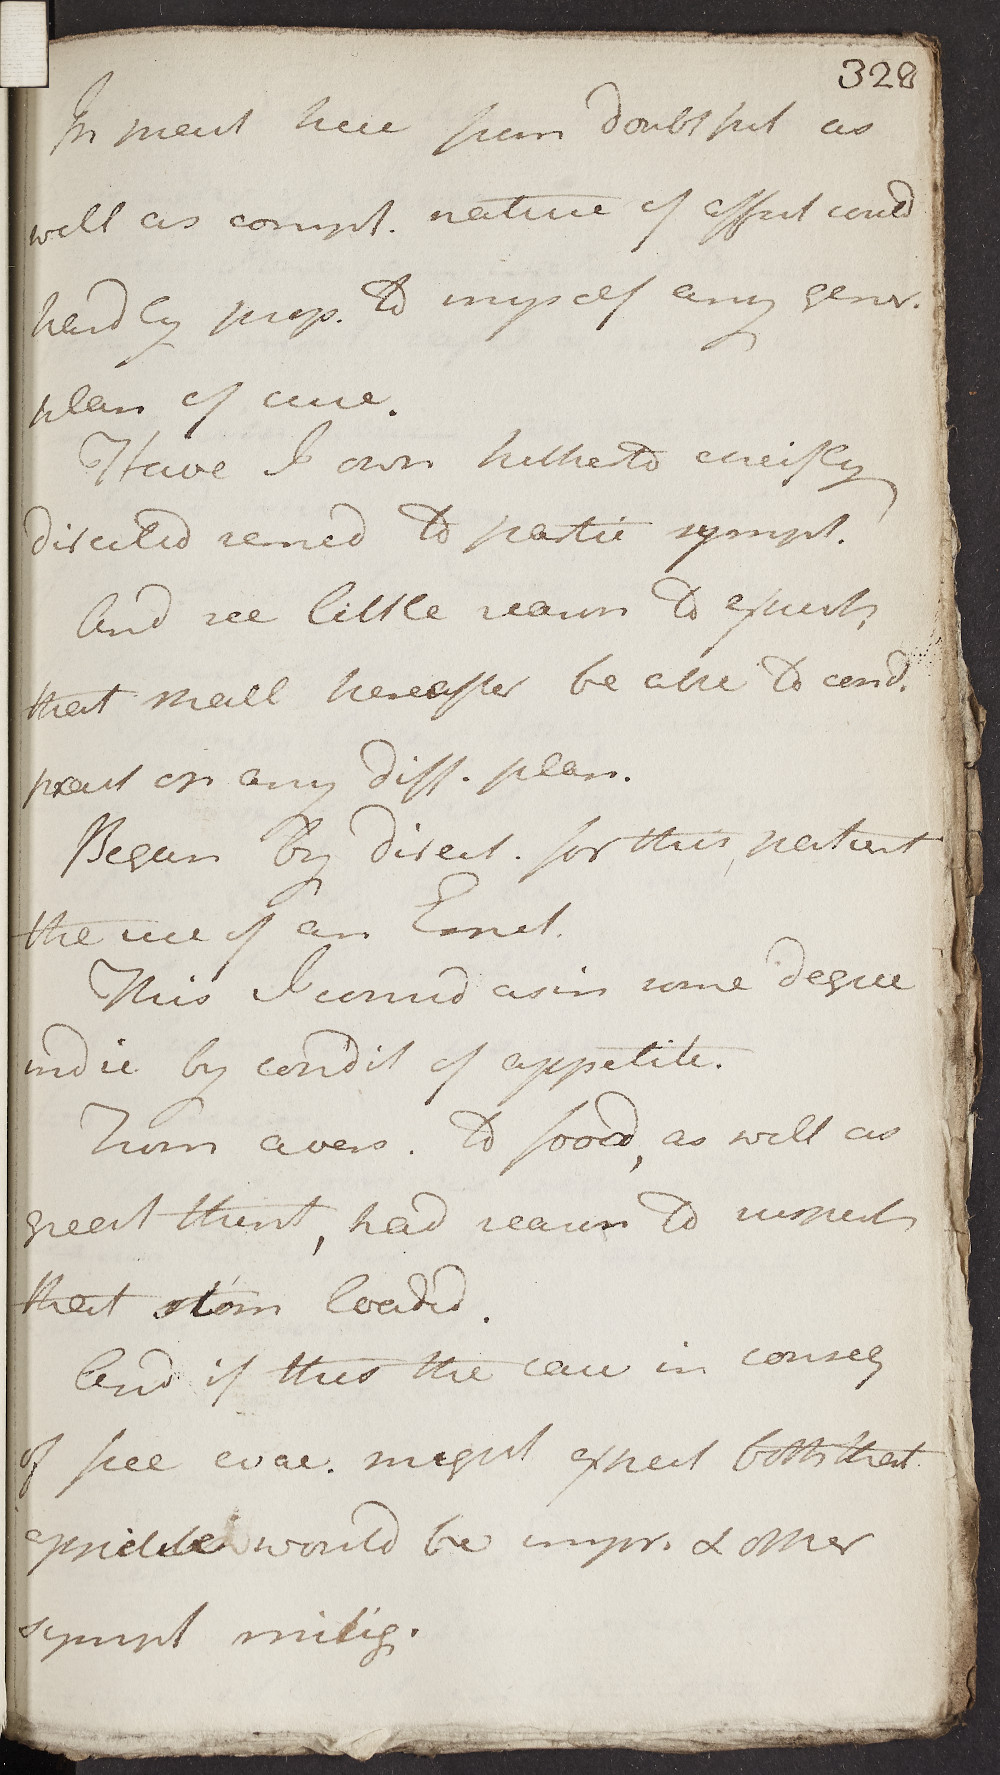 328
In meut here from doubtful as
well as compl. nature of affect could
hardly prop. to myself any gener.
plan of cure.
Have I own hitherto cheifly
directed remed to partic sympt.
And see little reason to expect,
that shall hereafter be able to cond.
pract on any diff. plan.
Began by direct. for this patient
the use of an Emet.
This I consid as in some degree
indic by condit of appetite.
From avers. to food, as well as
great thirst, had reason to suspect
that stom loaded.
And if this the case in conseq
of free evac. might expect both that
appetite would be impr. & other
sympt mitig.